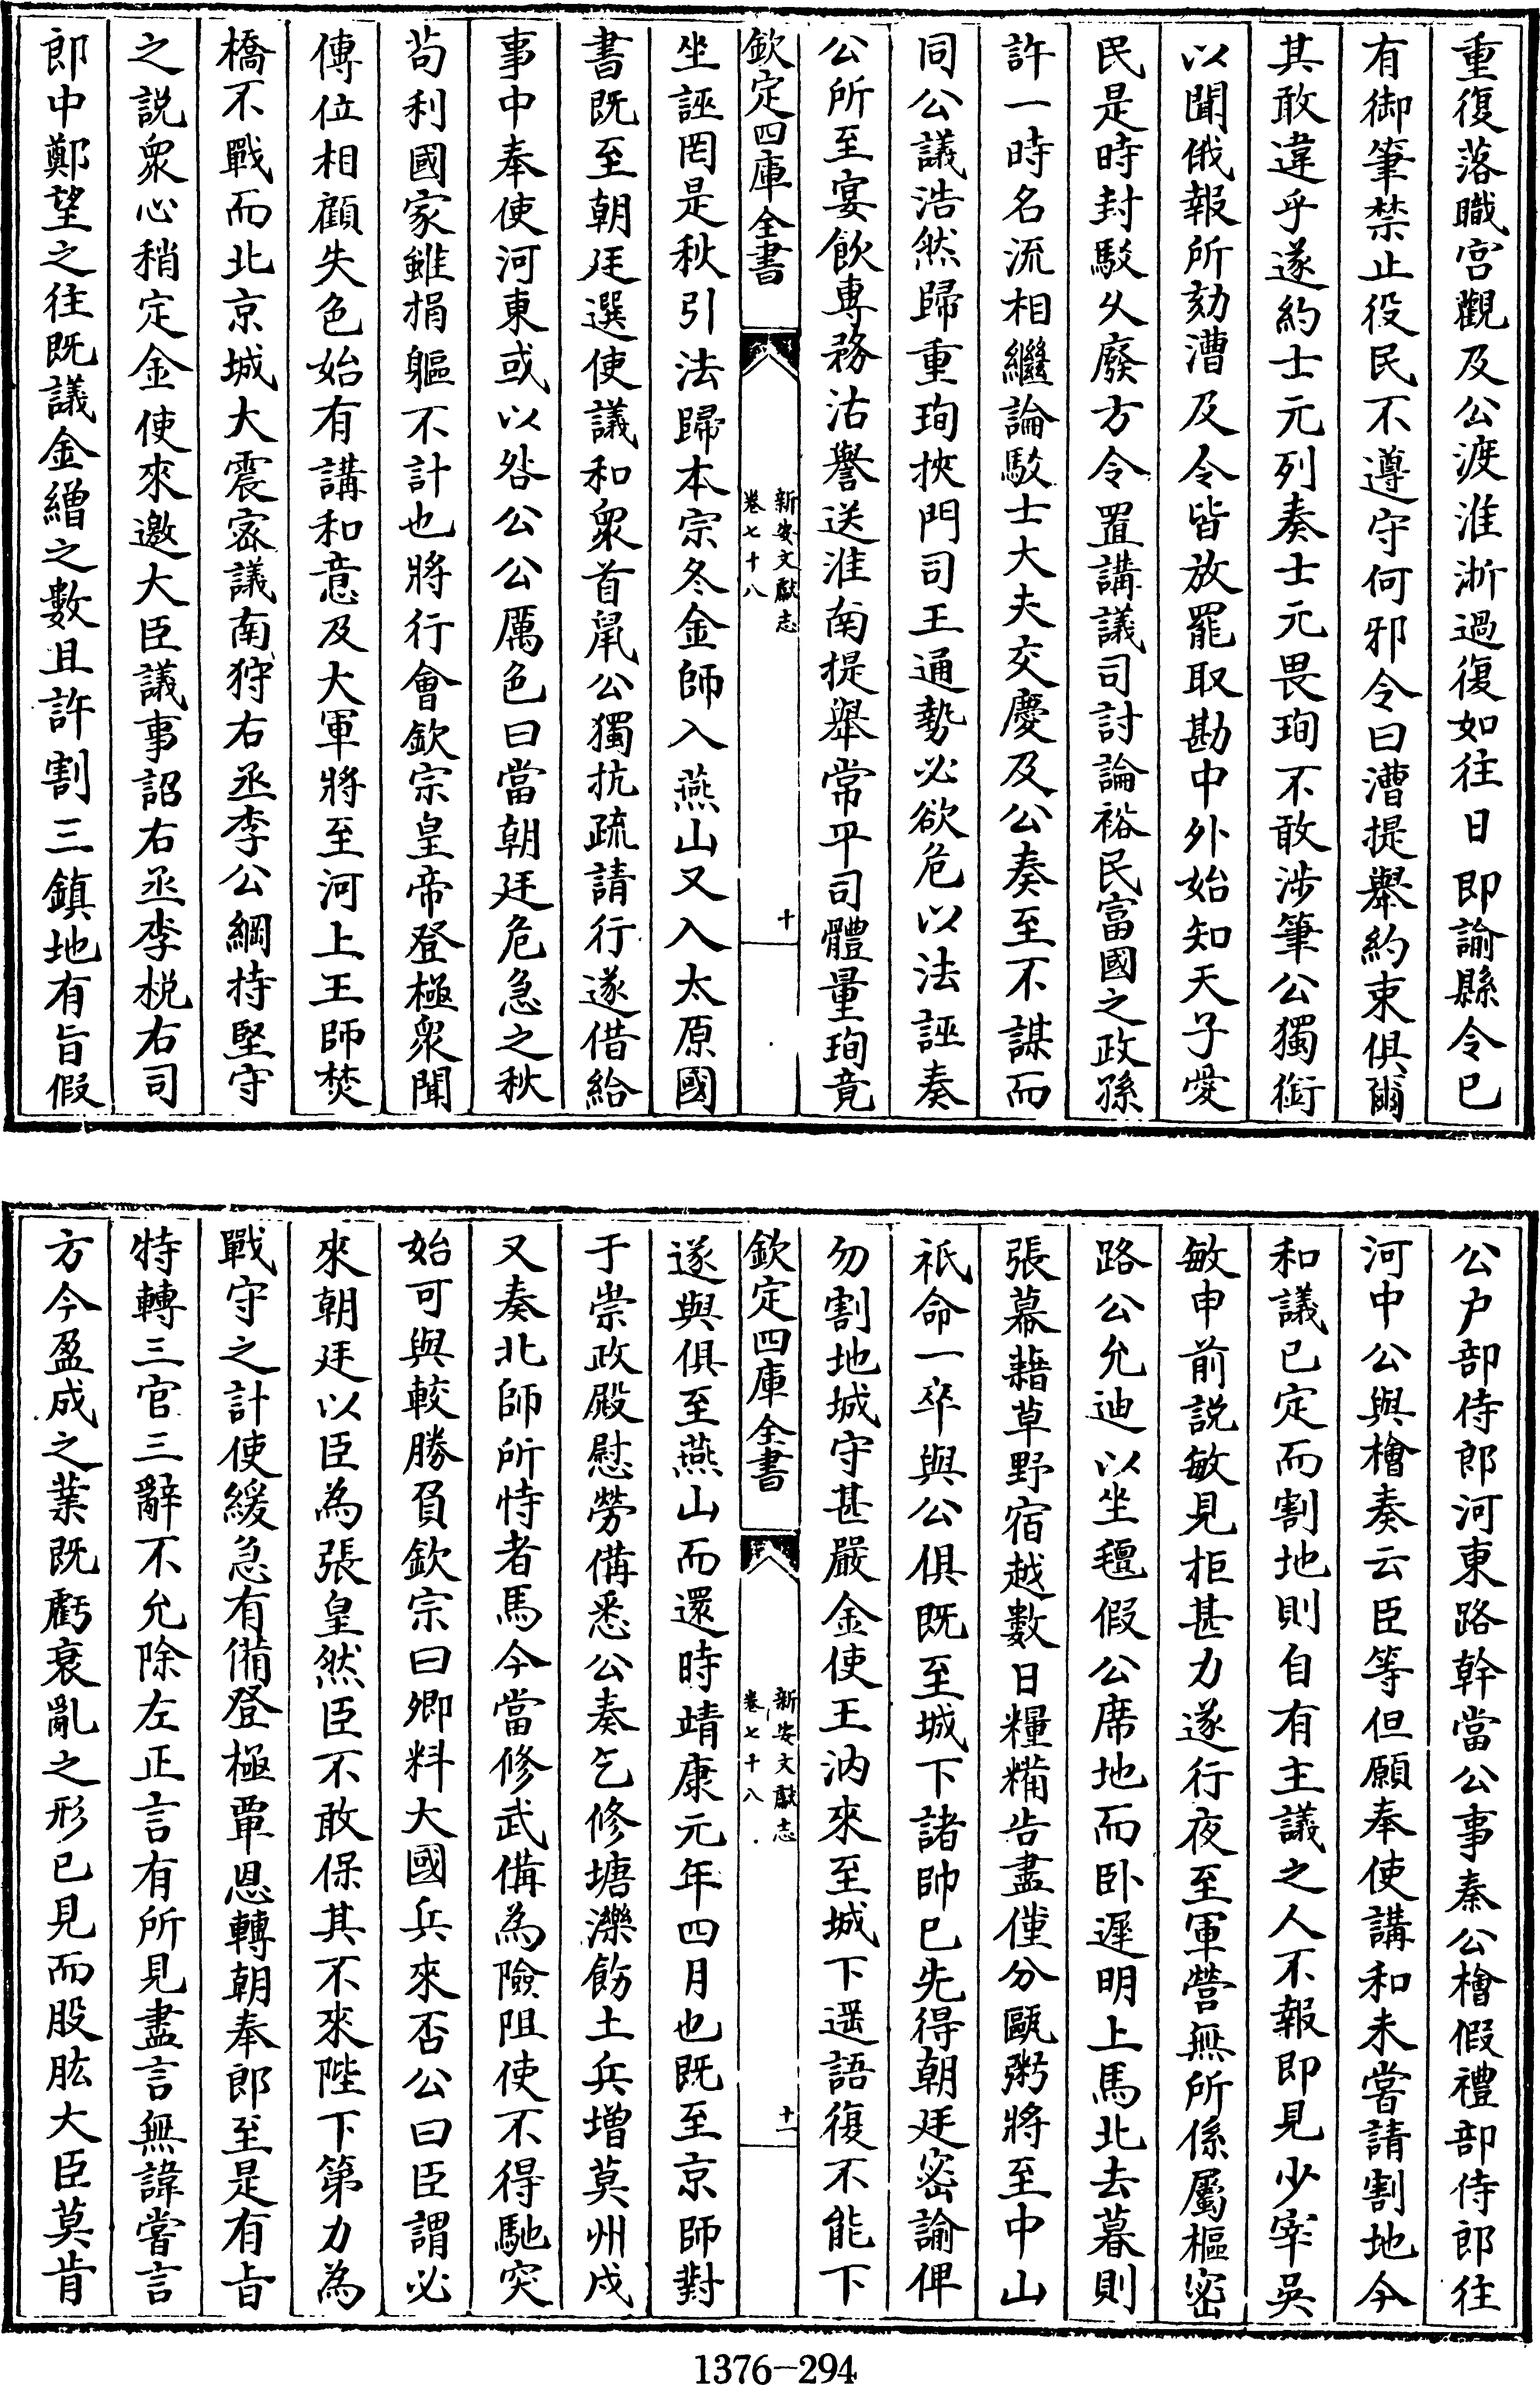 重復落職宫觀及公渡淮淅過復如往日即諭縣令已
有御筆禁止役民不遵守何邪令曰漕提舉約束俱爾
其敢違乎遂約士元列奏士元畏珣不敢涉筆公獨銜
以聞俄報所劾漕及令皆放罷取勘中外始知天子愛
民是時封駮久廢方令置講議司討論裕民富國之政孫
許一時名流相繼論駮士大夫交慶及公奏至不謀而
同公議浩然歸重珣挾門司王通勢必欲危以法誣奏
公所至宴飲專務沽譽送淮南提舉常平司體量珣竟
欽定四庫全書
新安文獻志
卷七十八
十
坐誣罔是秋引法歸本宗冬金師入燕山又入太原國
書既至朝廷選使議和衆首䑕公獨抗疏請行遂借給
事中奉使河東或以咎公公厲色曰當朝廷危急之秋
茍利國家雖捐軀不計也將行會欽宗皇帝登極衆聞
傳位相顧失色始有講和意及大軍將至河上王師焚
橋不戰而北京城大震宻議南狩右丞李公綱持堅守
之説衆心稍定金使來邀大臣議事詔右丞李梲右司
郎中鄭望之往既議金繒之數且許割三鎮地有旨假
公户部侍郎河東路幹當公事秦公檜假禮部侍郎往
河中公與檜奏云臣等但願奉使講和未嘗請割地今
和議已定而割地則自有主議之人不報即見少宰吳
敏申前説敏見拒甚力遂行夜至軍營無所係屬樞宻
路公允迪以坐氊假公席地而卧遲明上馬北去暮則
張幕藉草野宿越數日糧糒告盡僅分甌粥將至中山
祇命一卒與公俱既至城下諸帥已先得朝廷宻諭俾
勿割地城守甚嚴金使王汭來至城下遥語復不能下
欽定四庫全書
新安文獻志
卷七十八
十一
遂與俱至燕山而還時靖康元年四月也既至京師對
于崇政殿慰勞備悉公奏乞修塘濼飭土兵增莫州戍
又奏北師所恃者馬今當修武備為險阻使不得馳突
始可與較勝負欽宗曰卿料大國兵來否公曰臣謂必
來朝廷以臣為張皇然臣不敢保其不來陛下第力為
戰守之計使緩急有備登極覃恩轉朝奉郎至是有㫖
特轉三官三辭不允除左正言有所見盡言無諱嘗言
方今盈成之業既虧衰亂之形已見而股肱大臣莫肯
1376-294